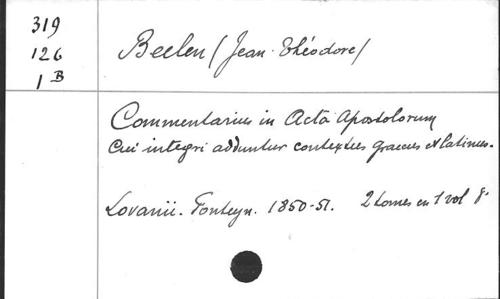 319
126
1 B
Beelen (Jean-Théodore)
Commentarius in Acta Apostolorum
Cui integri adduntur contextus graecus et latinus.
Lovanii. Fonteyn. 1850-51. 2 tomes en 1 vol 8°